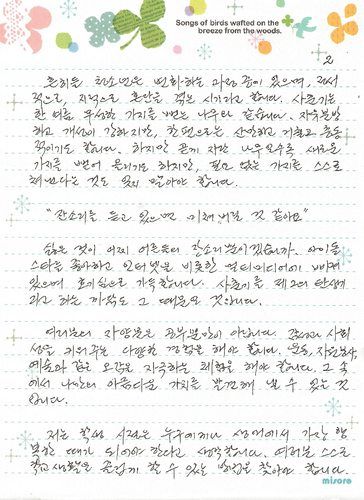 Songs of birds wafted on the
breeze from the woods.
2
흔히들 청소년은 변화하는 과정 중에 있으며, 정서
적으로, 지적으로 혼란을 겪는 시기라고 합니다. 사춘기는
한 여름 무성한 가지를 뻗는 나무와 같습니다. 자유분방
하고 개성이 강하지만, 한편으로는 산만하고 거칠고 충동
적이기도 합니다. 하지만 곧게 자란 나무일수록 새로운
가지를 뻗어 올리기도 하지만, 필요 없는 가지를 스스로
쳐낸다는 것도 잊지 말아야 합니다.
"잔소리를 듣고 있으면 미쳐버릴 것 같아요"
싫은 것이 어찌 어른들의 잔소리뿐이겠습니까. 아이들
스타를 좋아하고 인터넷을 비롯한 멀티미디어에 빠져
있으며 호기심으로 가득합니다. 사춘기를 제2의 탄생기
라고 하는 까닭도 그 때문일 것입니다.
여러분의 자양분은 공부뿐만이 아닙니다. 감성과 사회
성을 키워주는 다양한 경험을 해야 합니다. 운동, 자원봉사,
예술과 같은 오감을 자극하는 체험을 해야 합니다. 그 속
에서 나만의 아름다운 가치를 발견해 낼 수 있는 것
입니다.
저는 학생 시절은 누구에게나 생애에서 가장 행
복한 때가 되어야 한다고 생각합니다. 여러분 스스로
학교생활을 즐겁게 할 수 있는 방법을 찾아야 합니다.
misoro